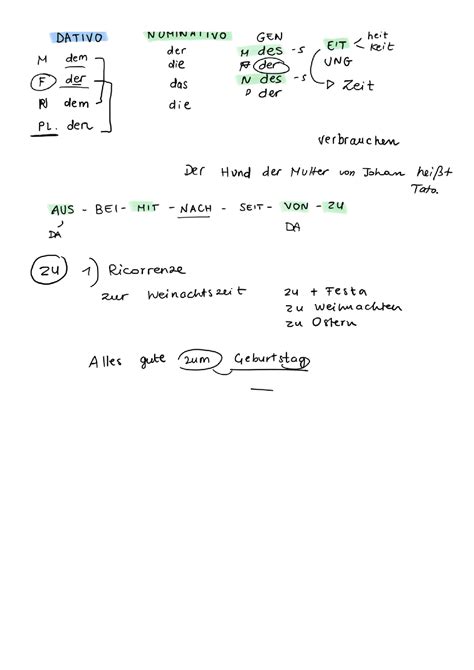 DATIVO NOMINATIVO GEN
M dem der M des -s EIT heit keit
F der die F der UNG
N dem das N des -s Zeit
PL. den die P der
verbrauchen
Der Hund der Mutter von Johan heißt
Tato.
AUS - BEI - MIT - NACH - SEIT - VON - ZU
DA DA
ZU 1) Ricorrenze
zur Weinachtszeit zu + Festa
zu Weihnachten
zu Ostern
Alles gute zum Geburtstag